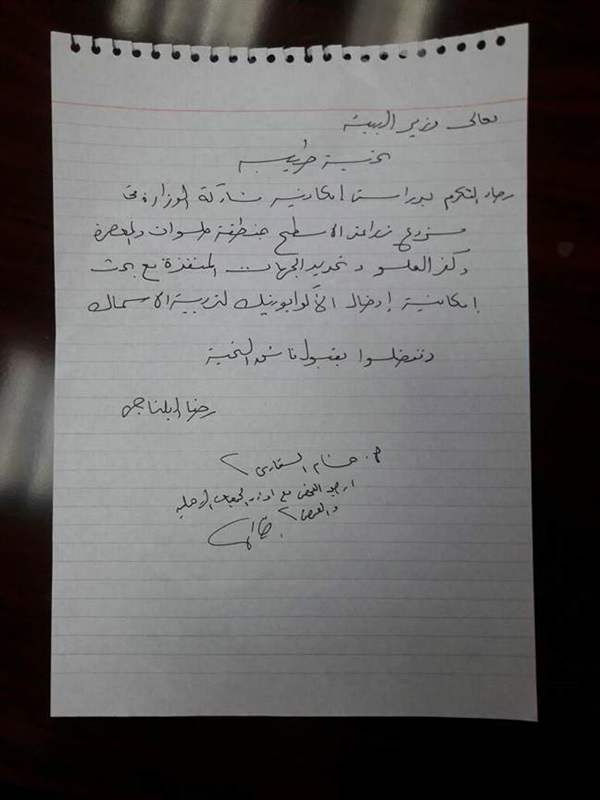 معالى وزير البيئة
تحية طيبة
رجاء التكرم بدراسة إمكانية مشاركة الوزارة فى
مشروع زراعة الاسطح بمنطقة حلوان والمعصرة
وكفر العلو وتحديد الجهات المنفذة مع بحث
إمكانية إدخال الأكوابونيك لتربية الاسماك
وتفضلوا بقبول فائق التحية
رضا البلتاجى
م. حسام
ارجو العرض مع إدارة الجمعيات الأهلية
والعرض